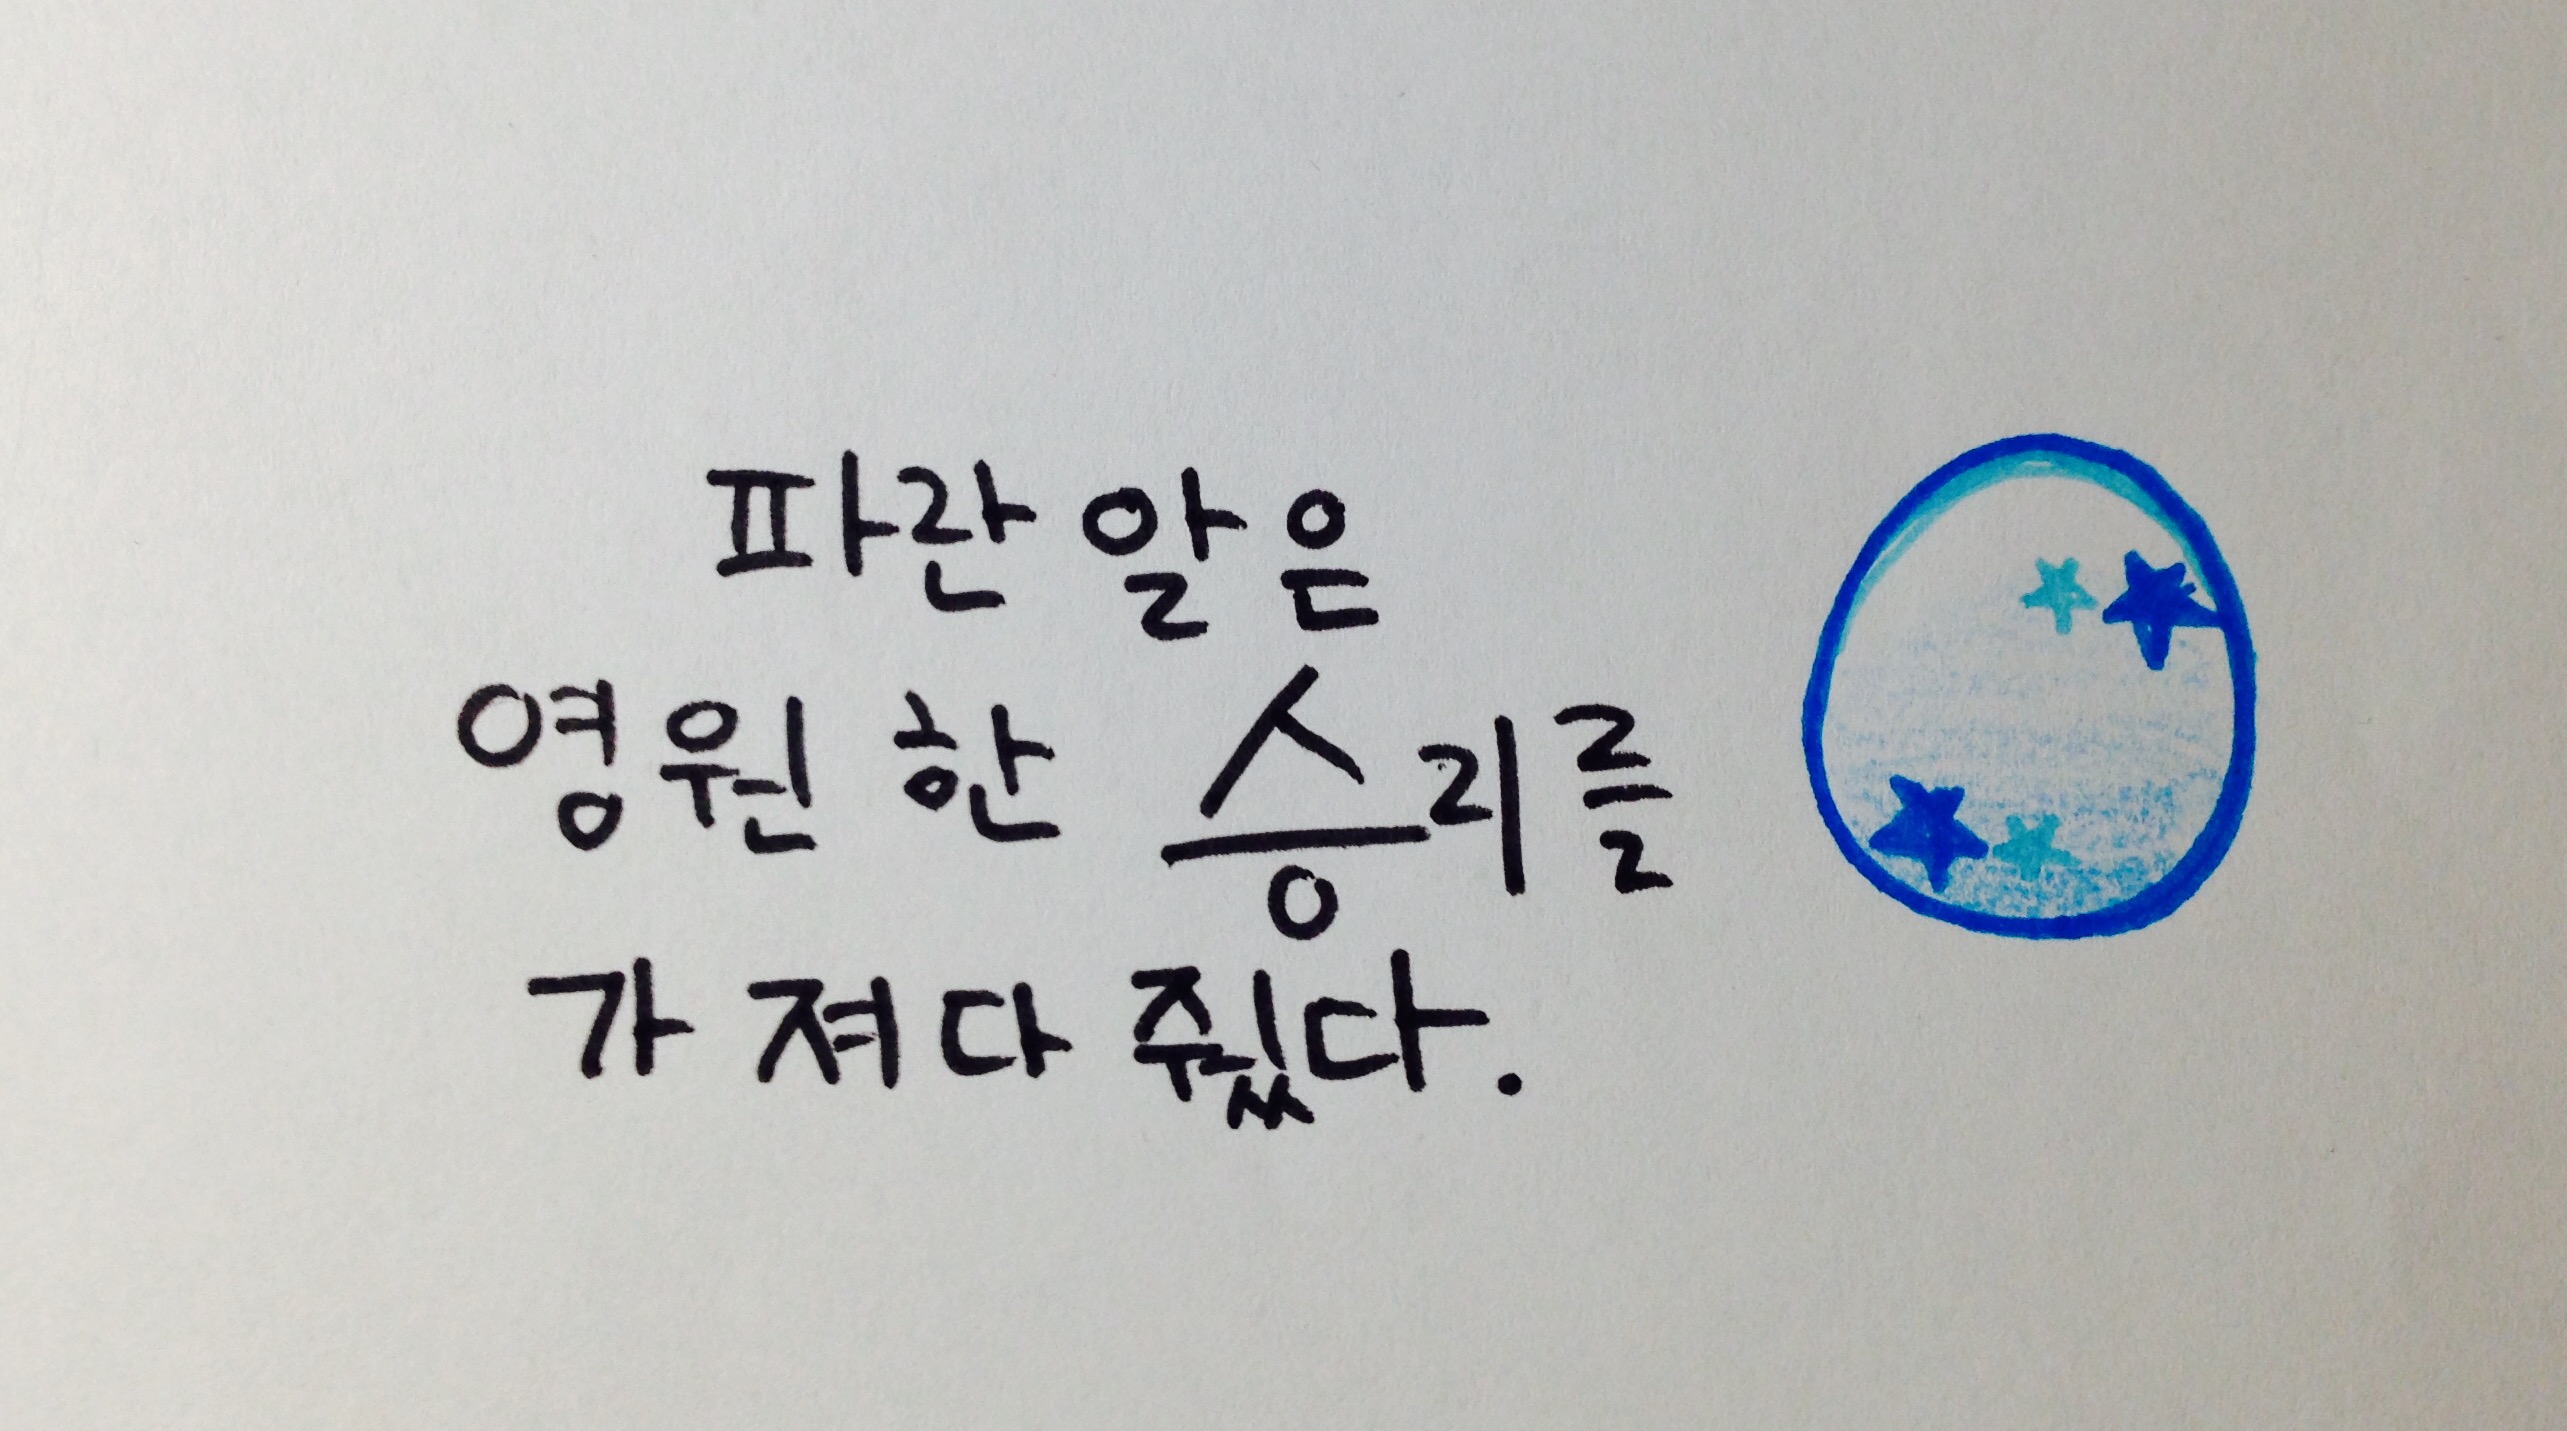 파란 알은
영원한 승리를
가져다 줬다.